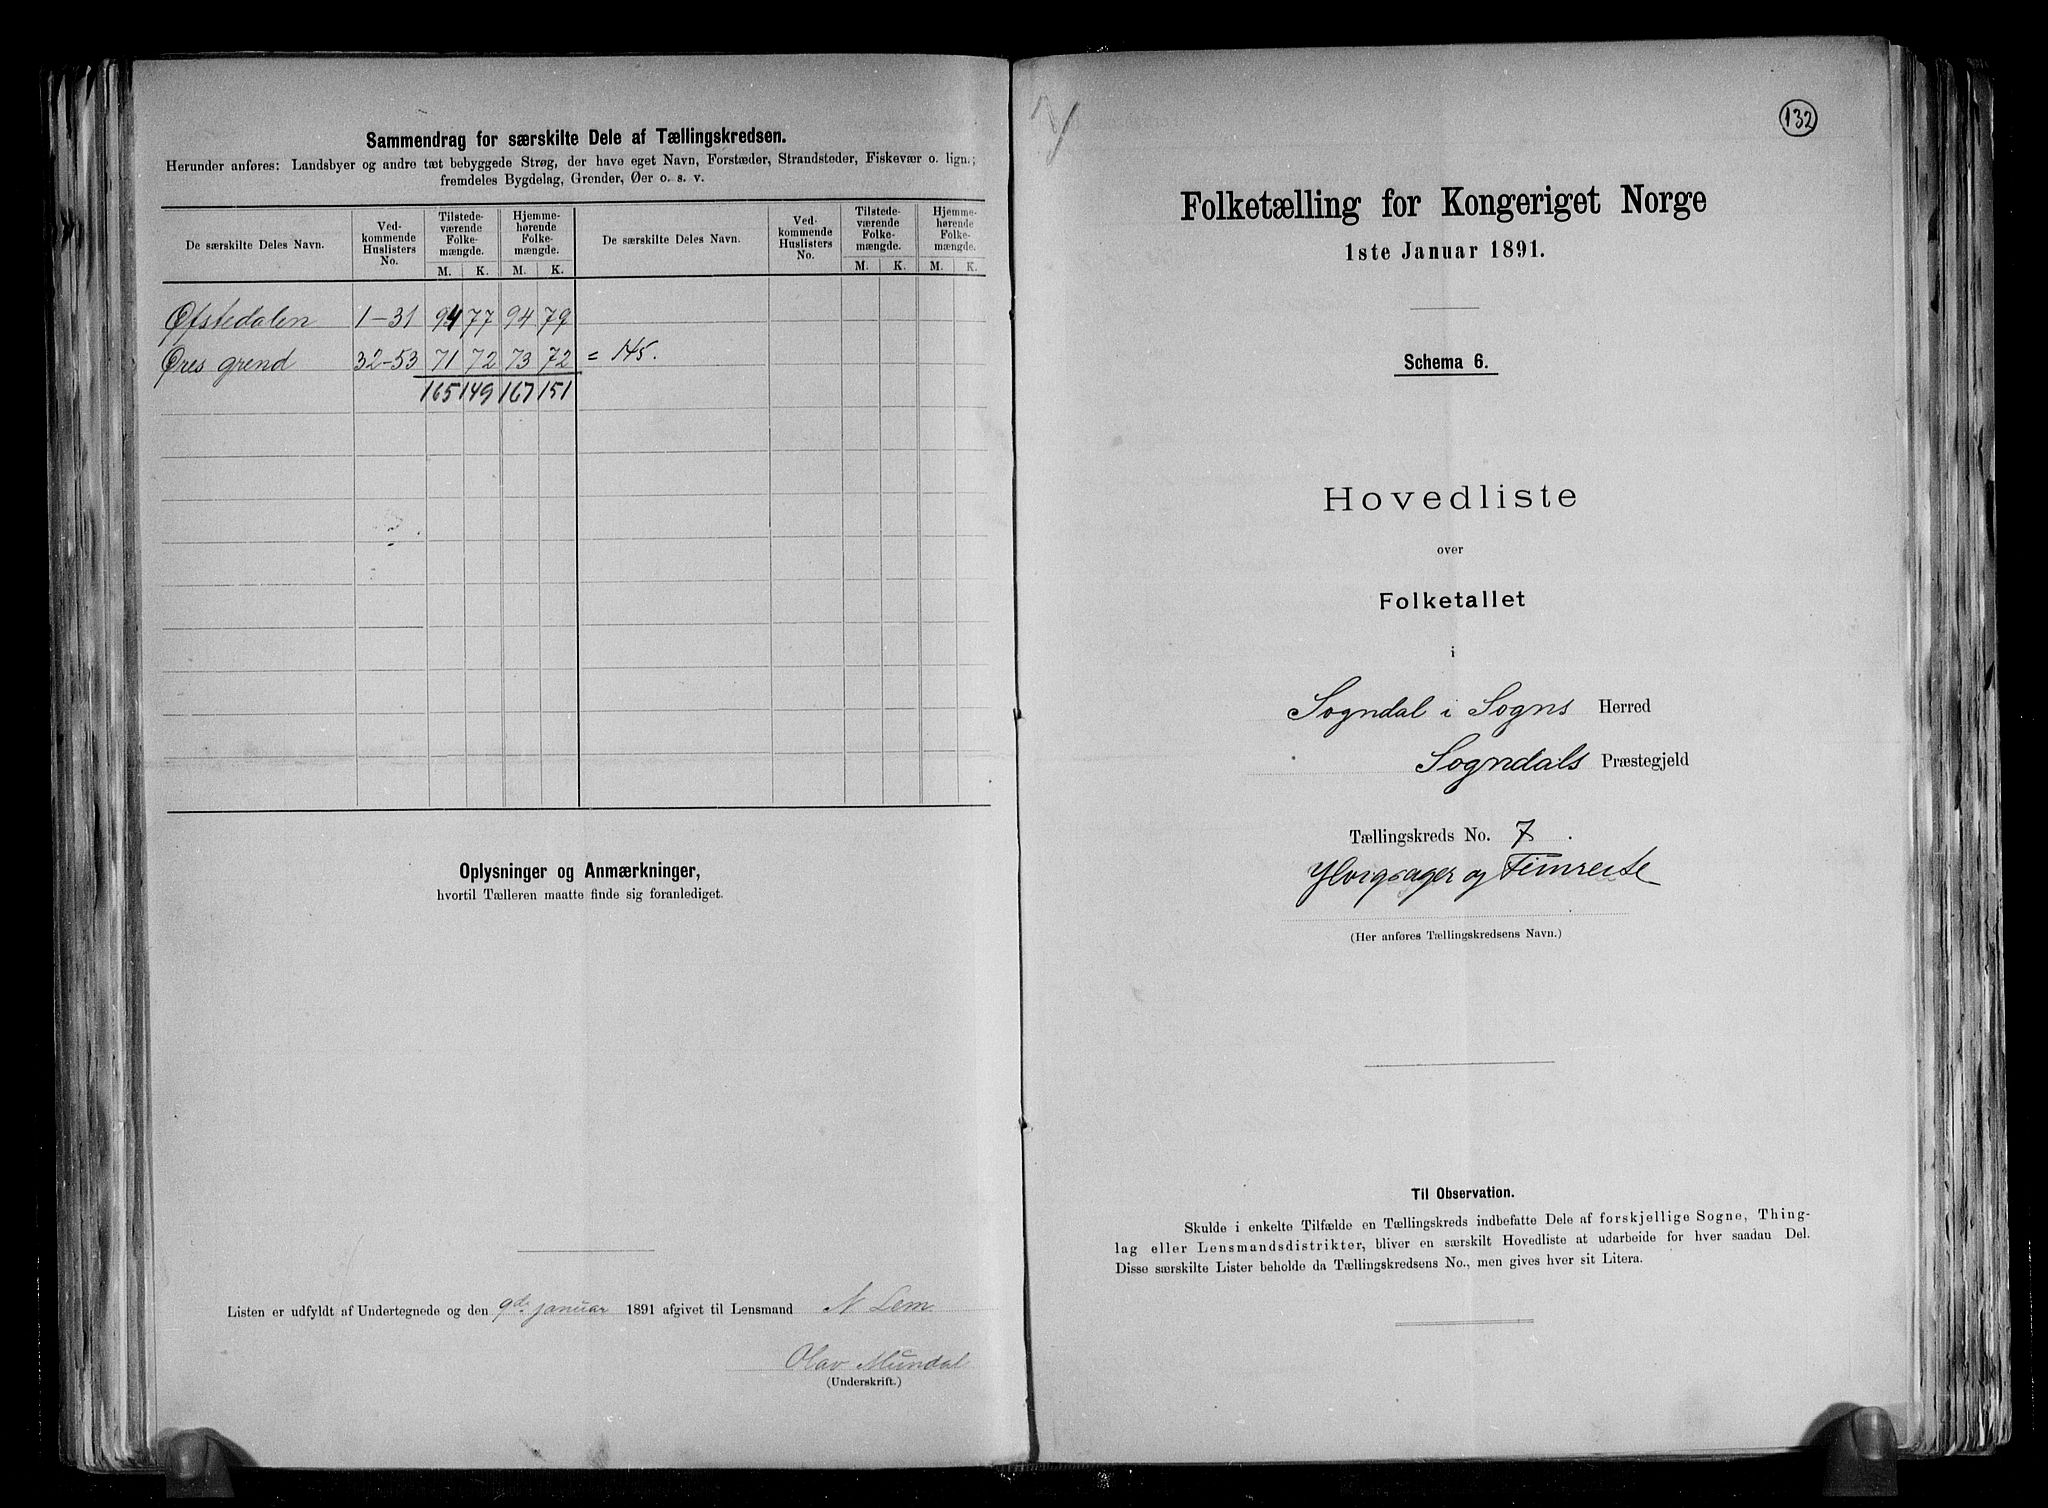 Sammendrag for særskilte Dele af Tællingskredsen.
Herunder anføres: Landsbyer og andre tæt bebyggede Strøg, der have eget Navn, Forstæder, Strandsteder, Fiskevær o. lign.;
fremdeles Bygdelag, Grender, Øer o. s. v.
De særskilte Deles Navn. Ved-kommende Huslisters No. Tilstede-værende Folke-mængde. Hjemme-hørende Folke-mængde. De særskilte Deles Navn. Ved-kommende Huslisters No. Tilstede-værende Folke-mængde. Hjemme-hørende Folke-mængde.
M. K. M. K. M. K. M. K.
Øfstedalen 1-31 94 77 94 79
Øres grend 32-53 71 72 73 72 = 145.
165 149 167 151
Oplysninger og Anmærkninger,
hvortil Tælleren maatte finde sig foranlediget.
Listen er udfyldt af Undertegnede og den 9de januar 1891 afgivet til Lensmand N Lem
Olav Mundal
(Underskrift.)
132
7
Folketælling for Kongeriget Norge
1ste Januar 1891.
Schema 6.
Hovedliste
over
Folketallet
i
Sogndal i Sogns Herred
Sogndals Præstegjeld
Tællingskreds No. 7.
Ylvisager og Fimreite
(Her anføres Tællingskredsens Navn.)
Til Observation.
Skulde i enkelte Tilfælde en Tællingskreds indbefatte Dele af forskjellige Sogne, Thing-
lag eller Lensmandsdistrikter, bliver en særskilt Hovedliste at udarbeide for hver saadan Del.
Disse særskilte Lister beholde da Tællingskredsens No., men gives hver sit Litera.